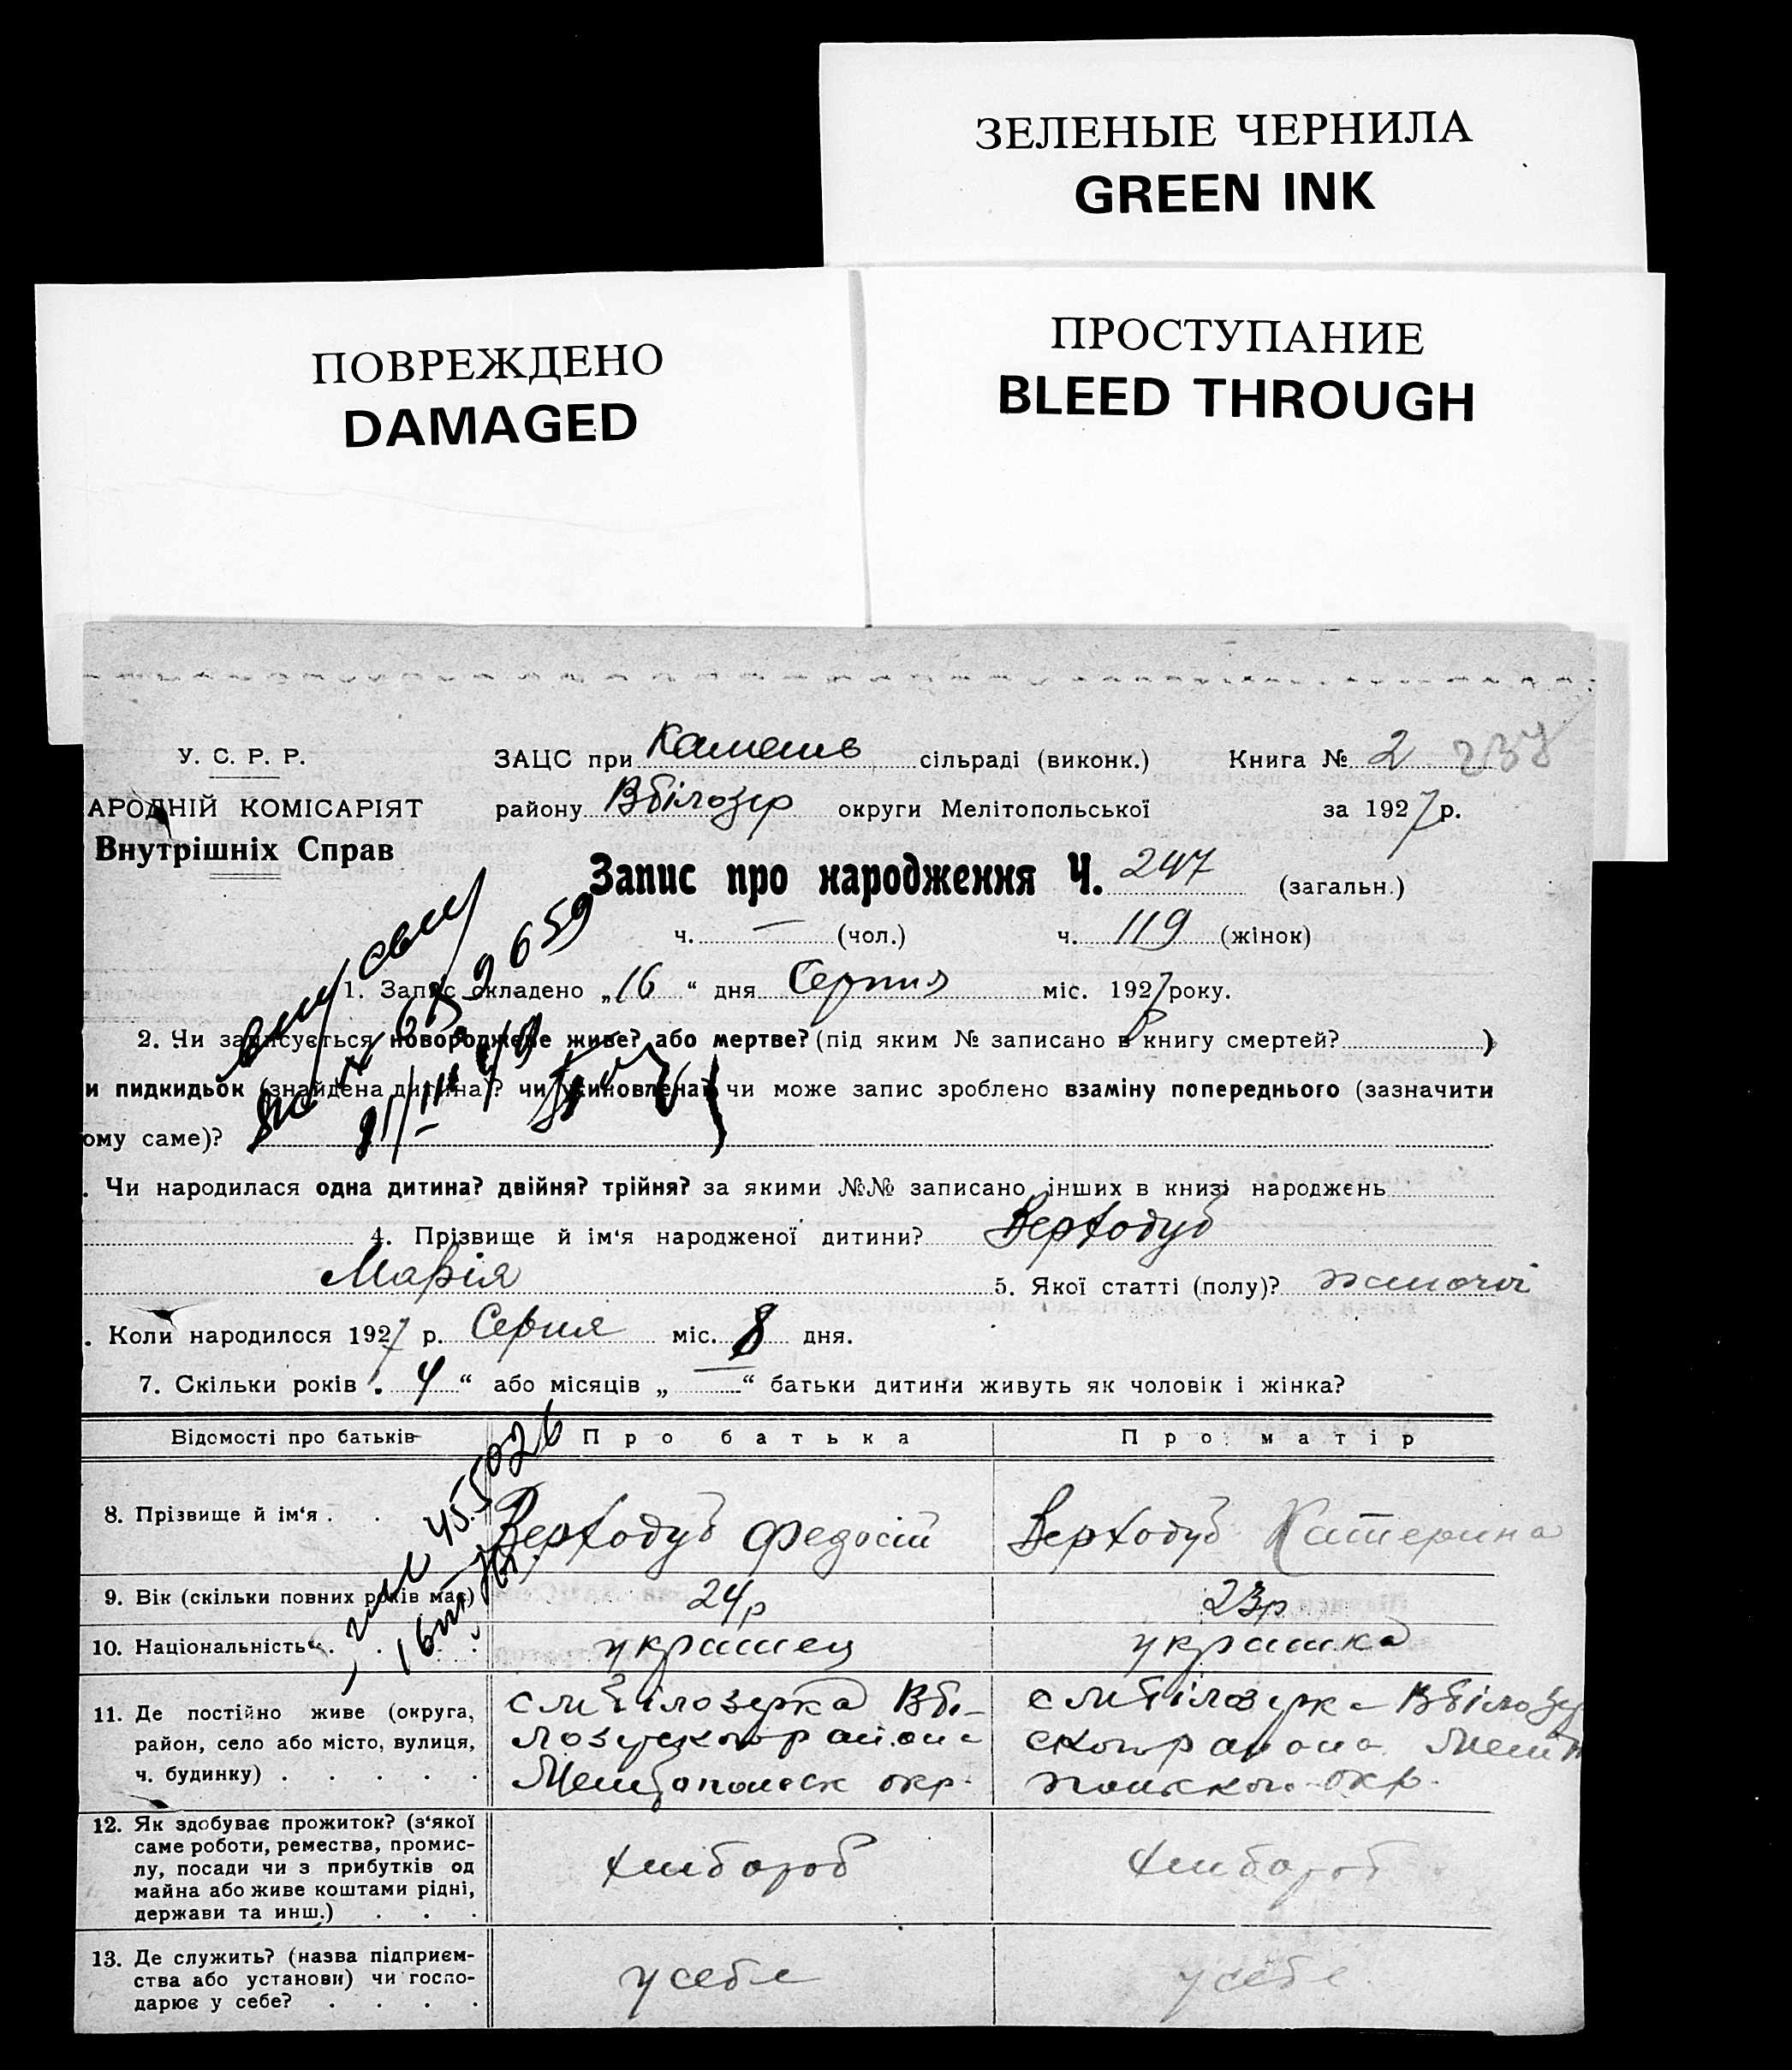 ЗЕЛЕНЫЕ ЧЕРНИЛА
GREEN INK
ПОВРЕЖДЕНО
DAMAGED
ПРОСТУПАНИЕ
BLEED THROUGH
У. С. Р. Р.
АРОДНІЙ КОМІСАРІЯТ
Внутрішніх Справ
ЗАЦС при Каменс сільраді (виконк.) Книга № 2 237
району Вбілозер округи Мелітопольської за 1927 р.
Запис про народження Ч. 247 (загальн.)
ч. — (чол.) ч. 119 (жінок)
1. Запис складено „16“ дня Серпня міс. 1927 року.
2. Чи записується новороджене живе? або мертве? (під яким № записано в книгу смертей? )
и пидкидьок (знайдена дитина)? чи усиновлена? чи може запис зроблено взаміну попереднього (зазначити
ому саме)?
. Чи народилася одна дитина? двійня? трійня? за якими №№ записано інших в книзі народжень
4. Прізвище й ім‘я народженої дитини? Верходуб
Марія 5. Якої статті (полу)? жіночої
. Коли народилося 1927 р. Серпня міс. 8 дня.
7. Скільки років „4“ або місяців „—“ батьки дитини живуть як чоловік і жінка?
Відомості про батьків Про батька Про матір
8. Прізвище й ім‘я . . Верходуб Федосій Верходуб Катерина
9. Вік (скільки повних років має) 24р 23р
10. Національність . . . . українец українка
11. Де постійно живе (округа,
район, село або місто, вулиця,
ч. будинку) . . . . .
окр.
окр.
12. Як здобуває прожиток? (з‘якої
саме роботи, ремества, промис-
лу, посади чи з прибутків од
майна або живе коштами рідні,
держави та инш.) . . .
хлібороб хлібороб
13. Де служить? (назва підприєм-
ства або установи) чи госпо-
дарює у себе? . . . .
у себе у себе